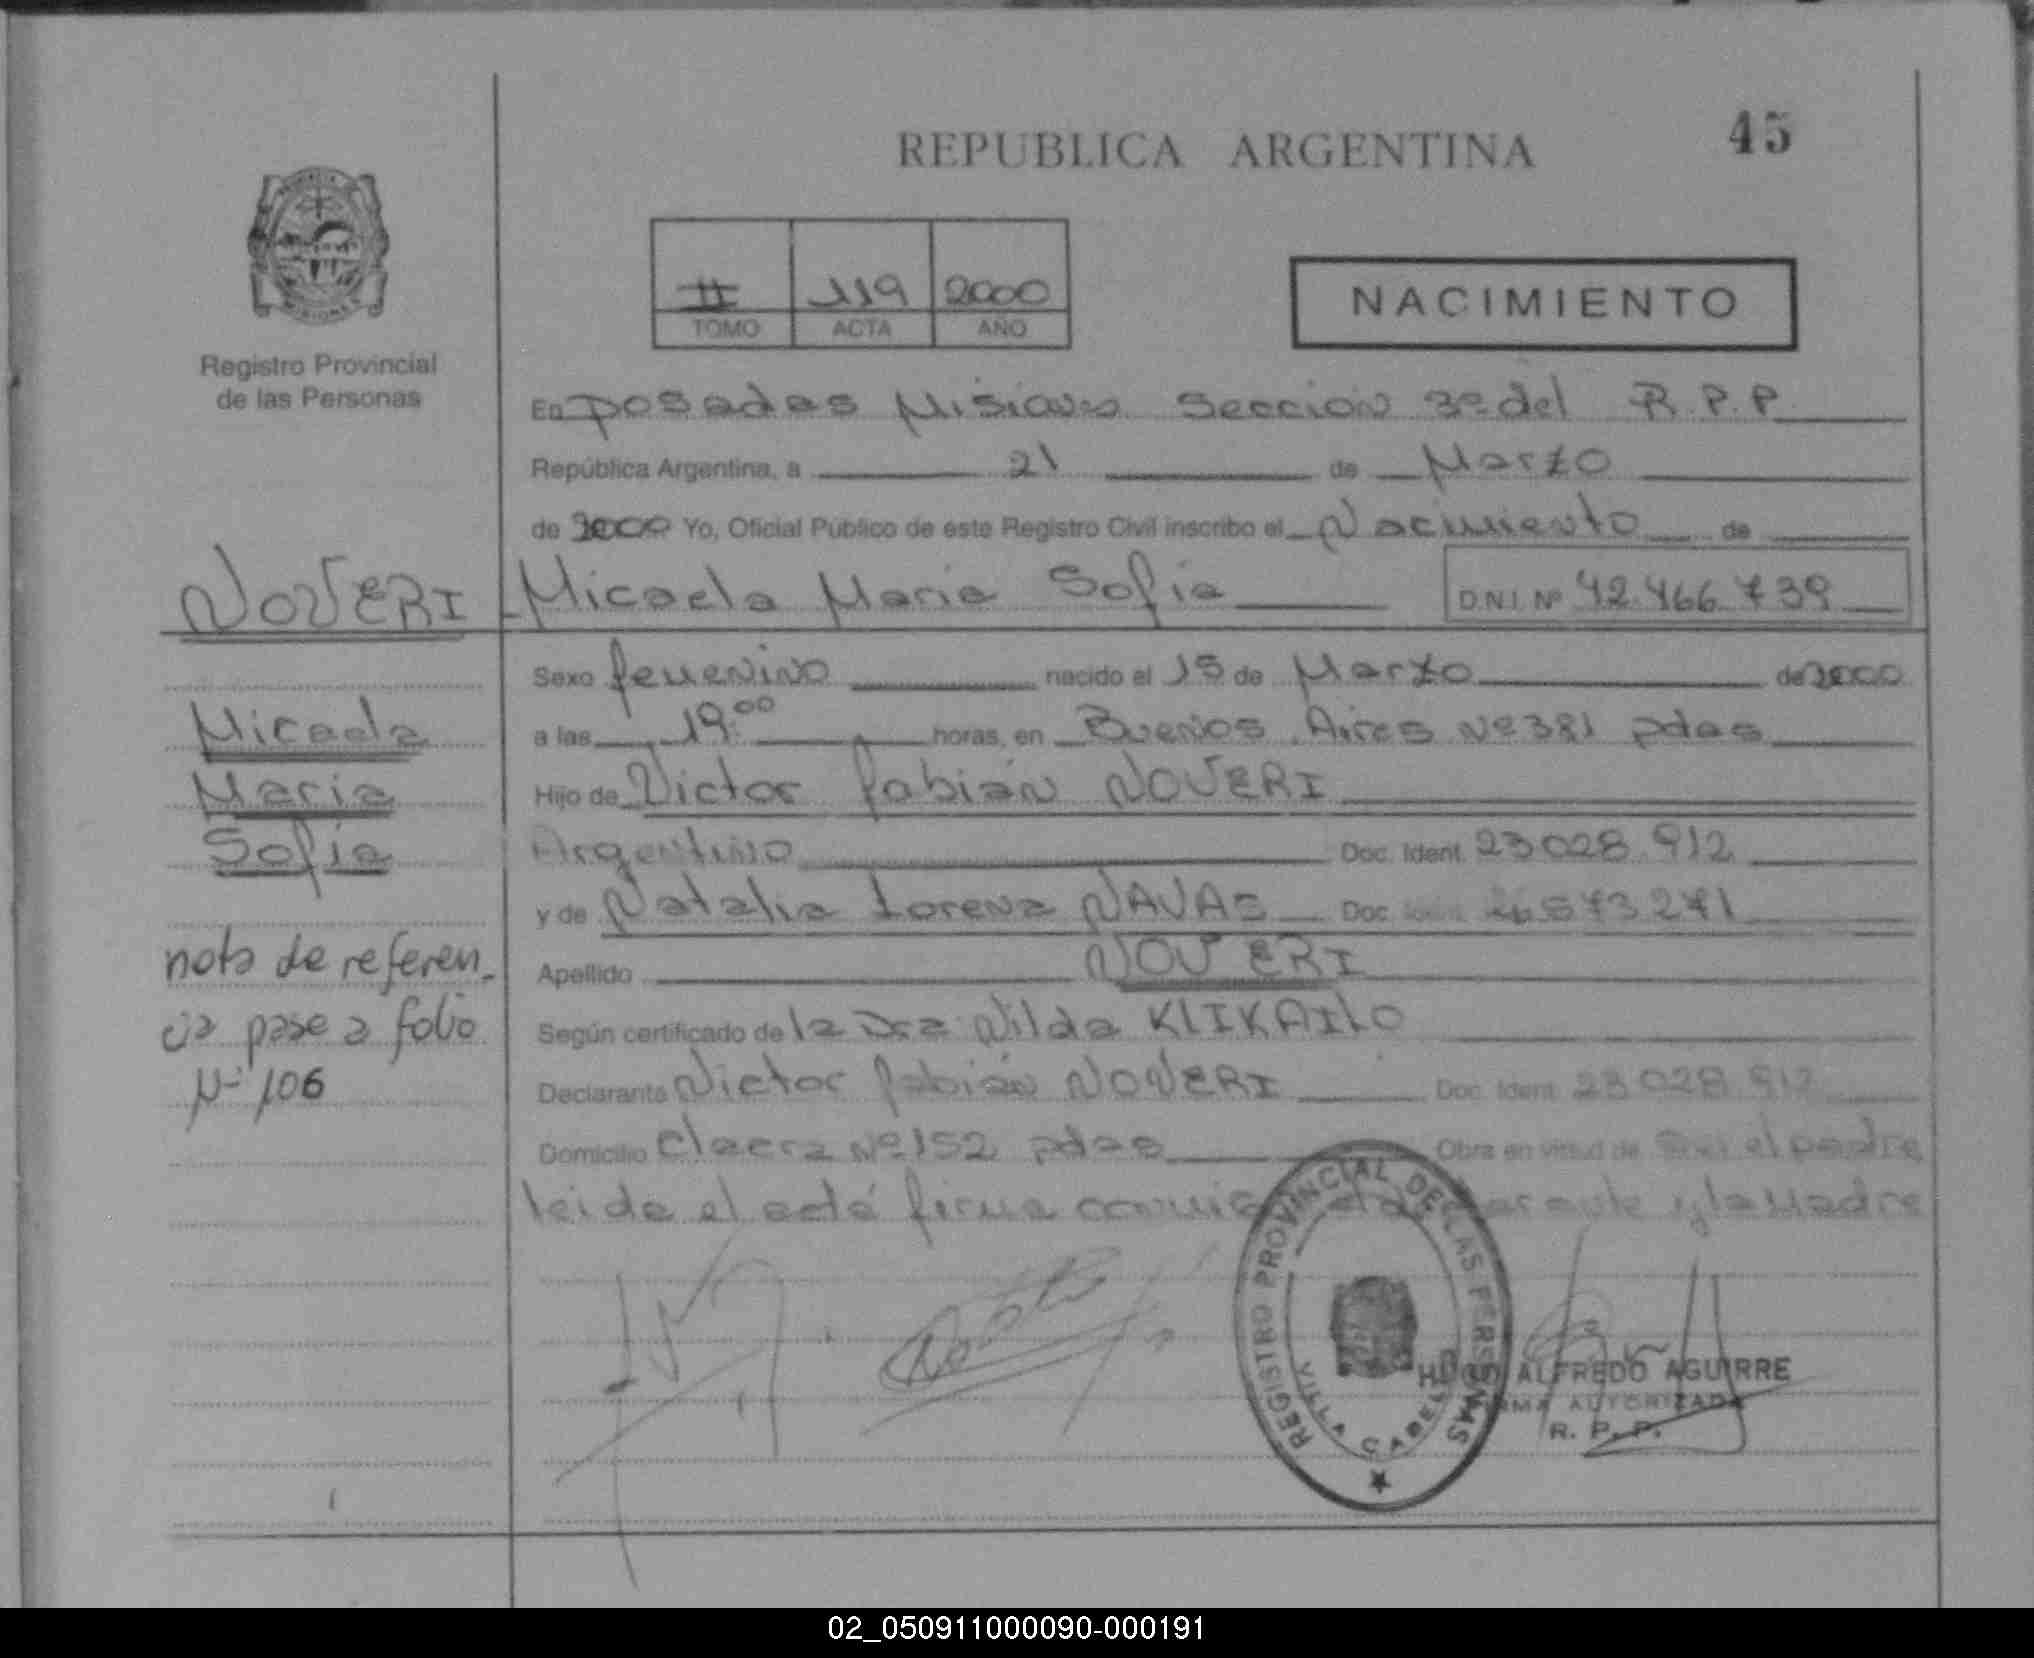 45
REPUBLICA ARGENTINA
II 119 2000
TOMO ACTA AÑO
NACIMIENTO
Registro Provincial
de las Personas
En Posadas Misiones Sección 3º del R.P.P.
República Argentina, a 21 de Marzo
de 2000 Yo, Oficial Público de este Registro Civil inscribo el Nacimiento de
NOVERI Micaela Maria Sofia D.N.I. Nº 42.466.739
Sexo femenino nacido el 15 de Marzo de 2000
Micaela
a las 19:00 horas, en Buenos Aires Nº 381 pdas
Maria
Hijo de Victor fabián NOVERI
Sofia
Argentino Doc. Ident. 23028.912
y de Natalia Lorena NAVAS Doc. Ident.
nota de referen-
Apellido NOVERI
cia pase a folio
Según certificado de la Dra Nilda
Nº 106
Declarante Victor fabián NOVERI Doc. Ident. 23028.912
Domicilio Nº 152 pdas Obra en virtud de el padre
leida el acta firma y la Madre
REGISTRO PROVINCIAL DE LAS PERSONAS
VILLA
HUGO ALFREDO AGUIRRE
FIRMA AUTORIZADA
R. P. P.
02_050911000090-000191